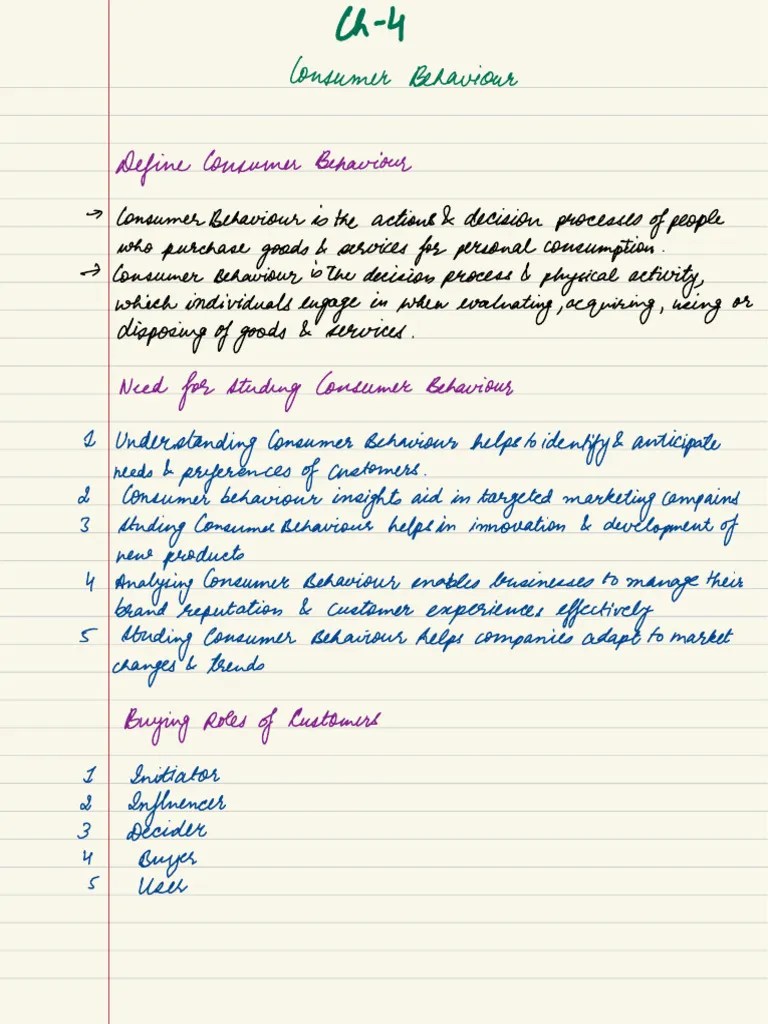 Ch-4
Consumer Behaviour
Define Consumer Behaviour
→ Consumer Behaviour is the actions & decision processes of people
who purchase goods & services for personal consumption.
→ Consumer Behaviour is the decision process & physical activity,
which individuals engage in when evaluating, acquiring, using or
disposing of goods & services.
Need for Studing Consumer Behaviour
1 Understanding Consumer Behaviour helps to identify & anticipate
needs & preferences of customers.
2 Consumer behaviour insights aid in targeted marketing compains
3 Studing Consumer Behaviour helps in innovation & development of
new products
4 Analysing Consumer Behaviour enables businesses to manage their
brand reputation & customer experiences effectively
5 Studing Consumer Behaviour helps companies adapt to market
changes & trends
Buying Roles of Customers
1 Initiator
2 Influencer
3 Decider
4 Buyer
5 User